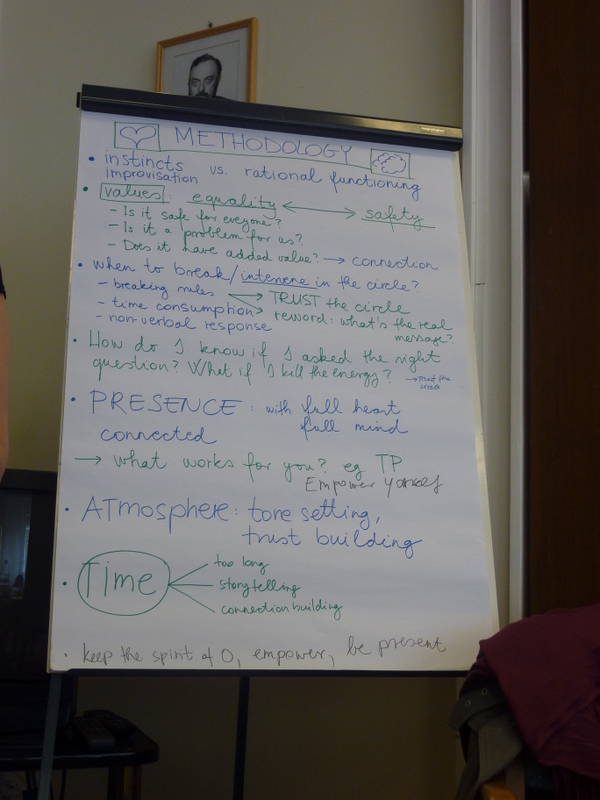 METHODOLOGY
• instincts
improvisation vs. rational functioning
• values: equality ↔ safety
- Is it safe for everyone?
- Is it a problem for us?
- Does it have added value? → connection
• when to break/intervene in the circle?
- breaking rules → TRUST the circle
- time consumption → reword: what's the real message?
- non-verbal response
• How do I know if I asked the right
question? What if I kill the energy? → trust the circle
• PRESENCE: with full heart
full mind
connected
→ what works for you? eg TP
Empower yorself
• ATmosphere: tore setting,
trust building
• Time
too long
storytelling
connection building
• keep the spirit of O, empower, be present